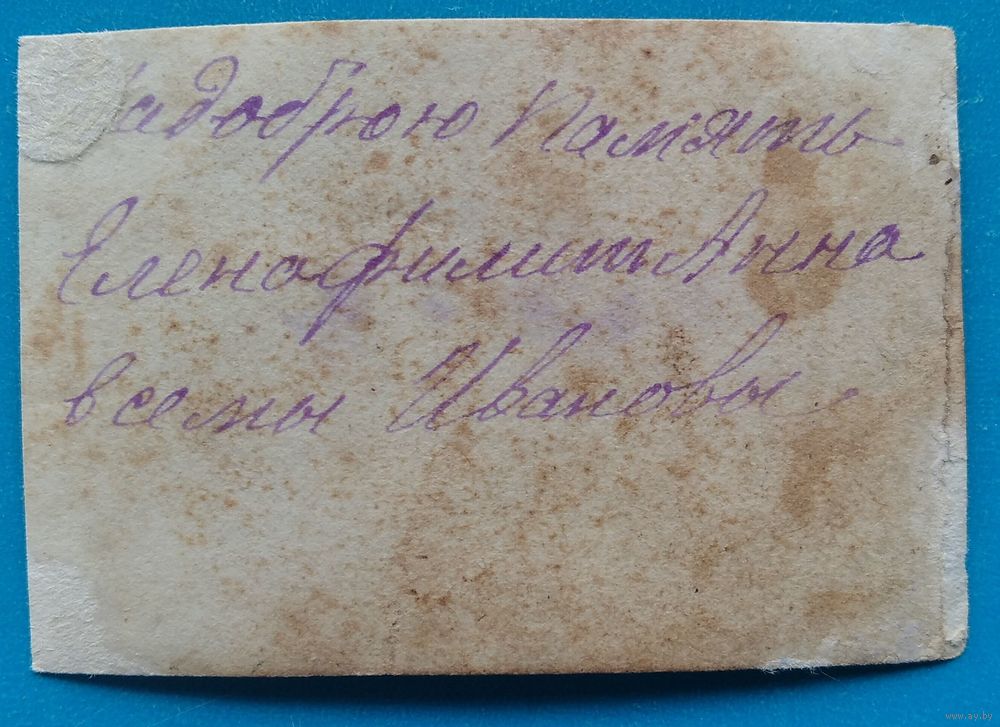 Надобрую Память
Еленафилит Анна
всемы Ивановы
www.ay.by